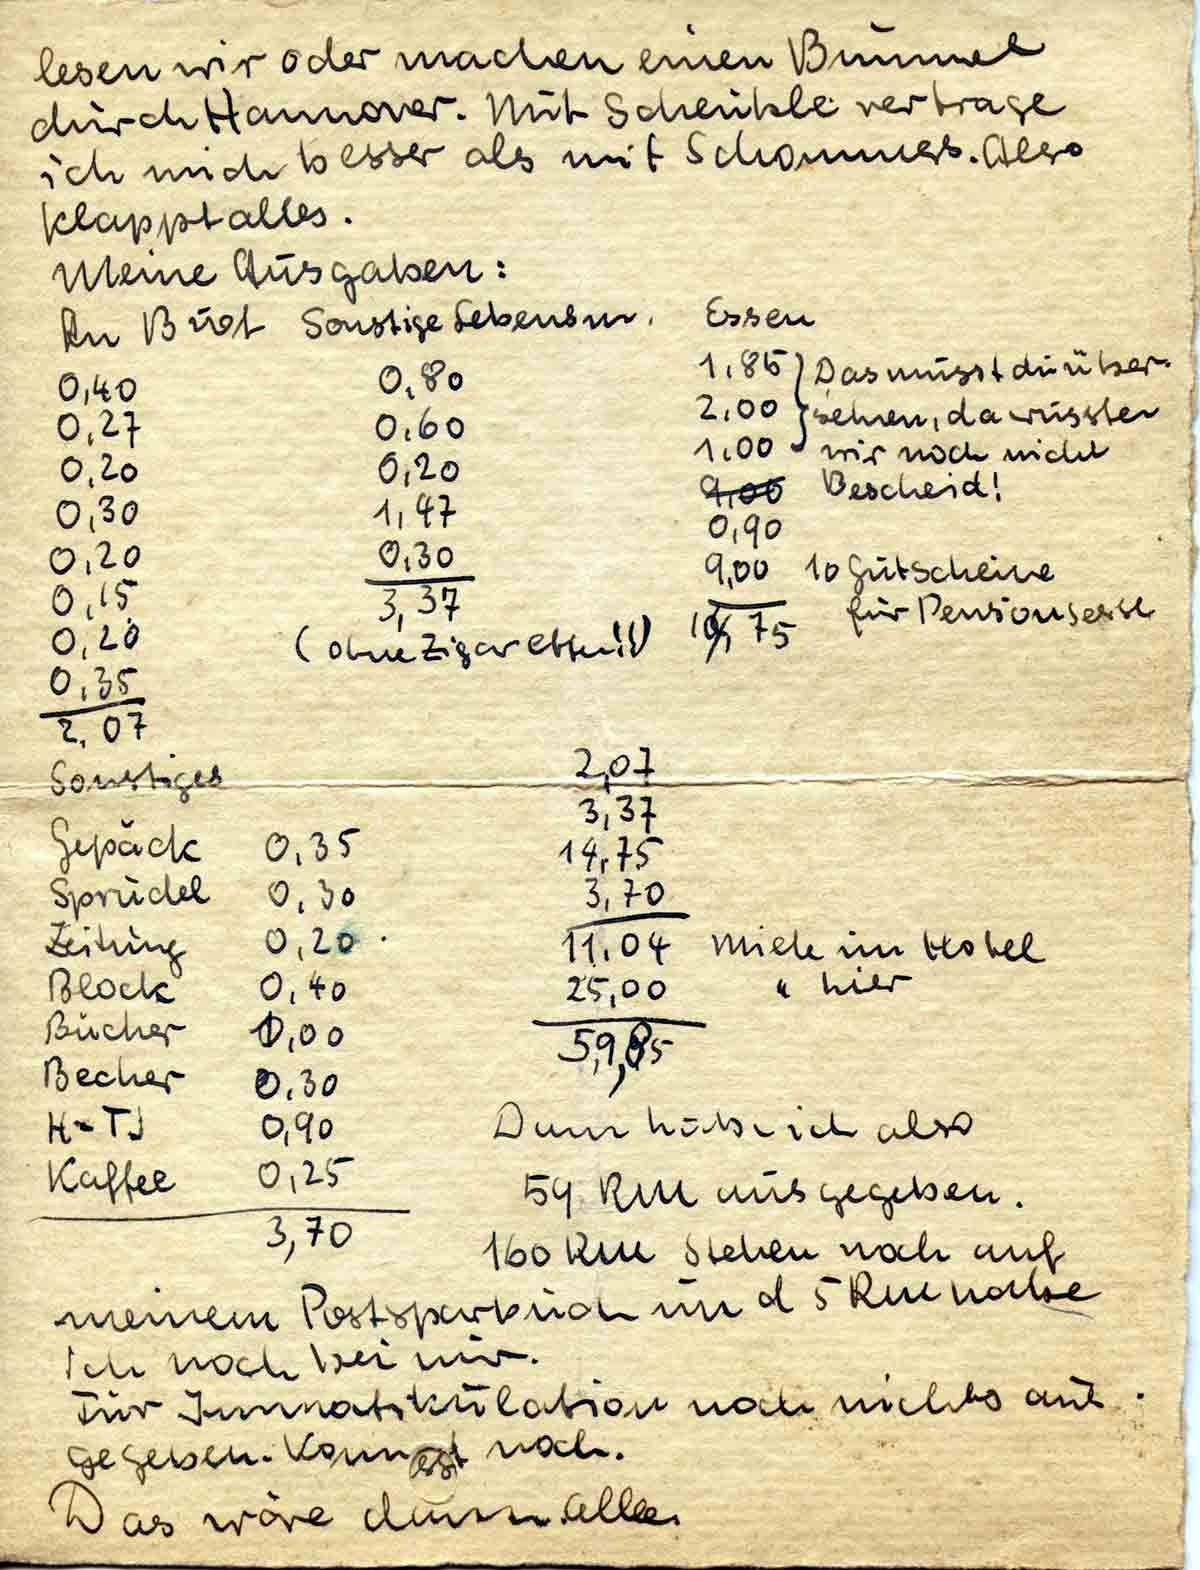 lesen wir oder machen einen Bummel
durch Hannover. Mit Scheukle vertrage
ich mich besser als mit Schommers. Also
klappt alles.
Meine Ausgaben:
An Brot Sonstige Lebensm. Essen
0,40 0,80 1,85 Das musst du über-
0,27 0,60 2,00 sehen, da wussten
0,20 0,20 1,00 wir noch nicht
0,30 1,47 9,00 Bescheid!
0,20 0,30 0,90
0,15 3,37 9,00 10 Gutscheine
0,20 (ohne Zigaretten!!) 14,75 für Pensionsess.
0,35
2,07
Sonstiges 2,07
3,37
Gepäck 0,35 14,75
Sprudel 0,30 3,70
Zeitung 0,20 11,04 Miete im Hotel
Block 0,40 25,00 " hier
Bücher 1,00 59,95
Becher 0,30
H-TJ 0,90 Dann habe ich also
Kaffee 0,25 59 RM ausgegeben.
3,70 160 RM stehen noch auf
meinem Postsparbuch und 5 RM habe
ich noch bei mir.
Für Immatrikulation noch nichts aus-
gegeben. Kommt noch.
Das wäre dann alles.